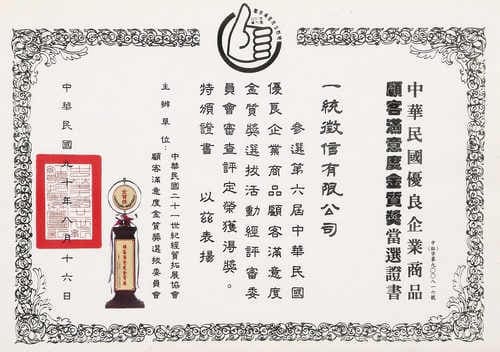 中華民國優良企業商品
顧客滿意度金質獎當選證書
一統徵信有限公司
參選第六屆中華民國
優良企業商品顧客滿意度
金質獎選拔活動經評審委
員會審查評定榮獲得獎。
特頒證書　以茲表揚
主辦單位：
中華民國二十一世紀經貿拓展協會
顧客滿意度金質獎選拔委員會
中華民國九十年八月十六日